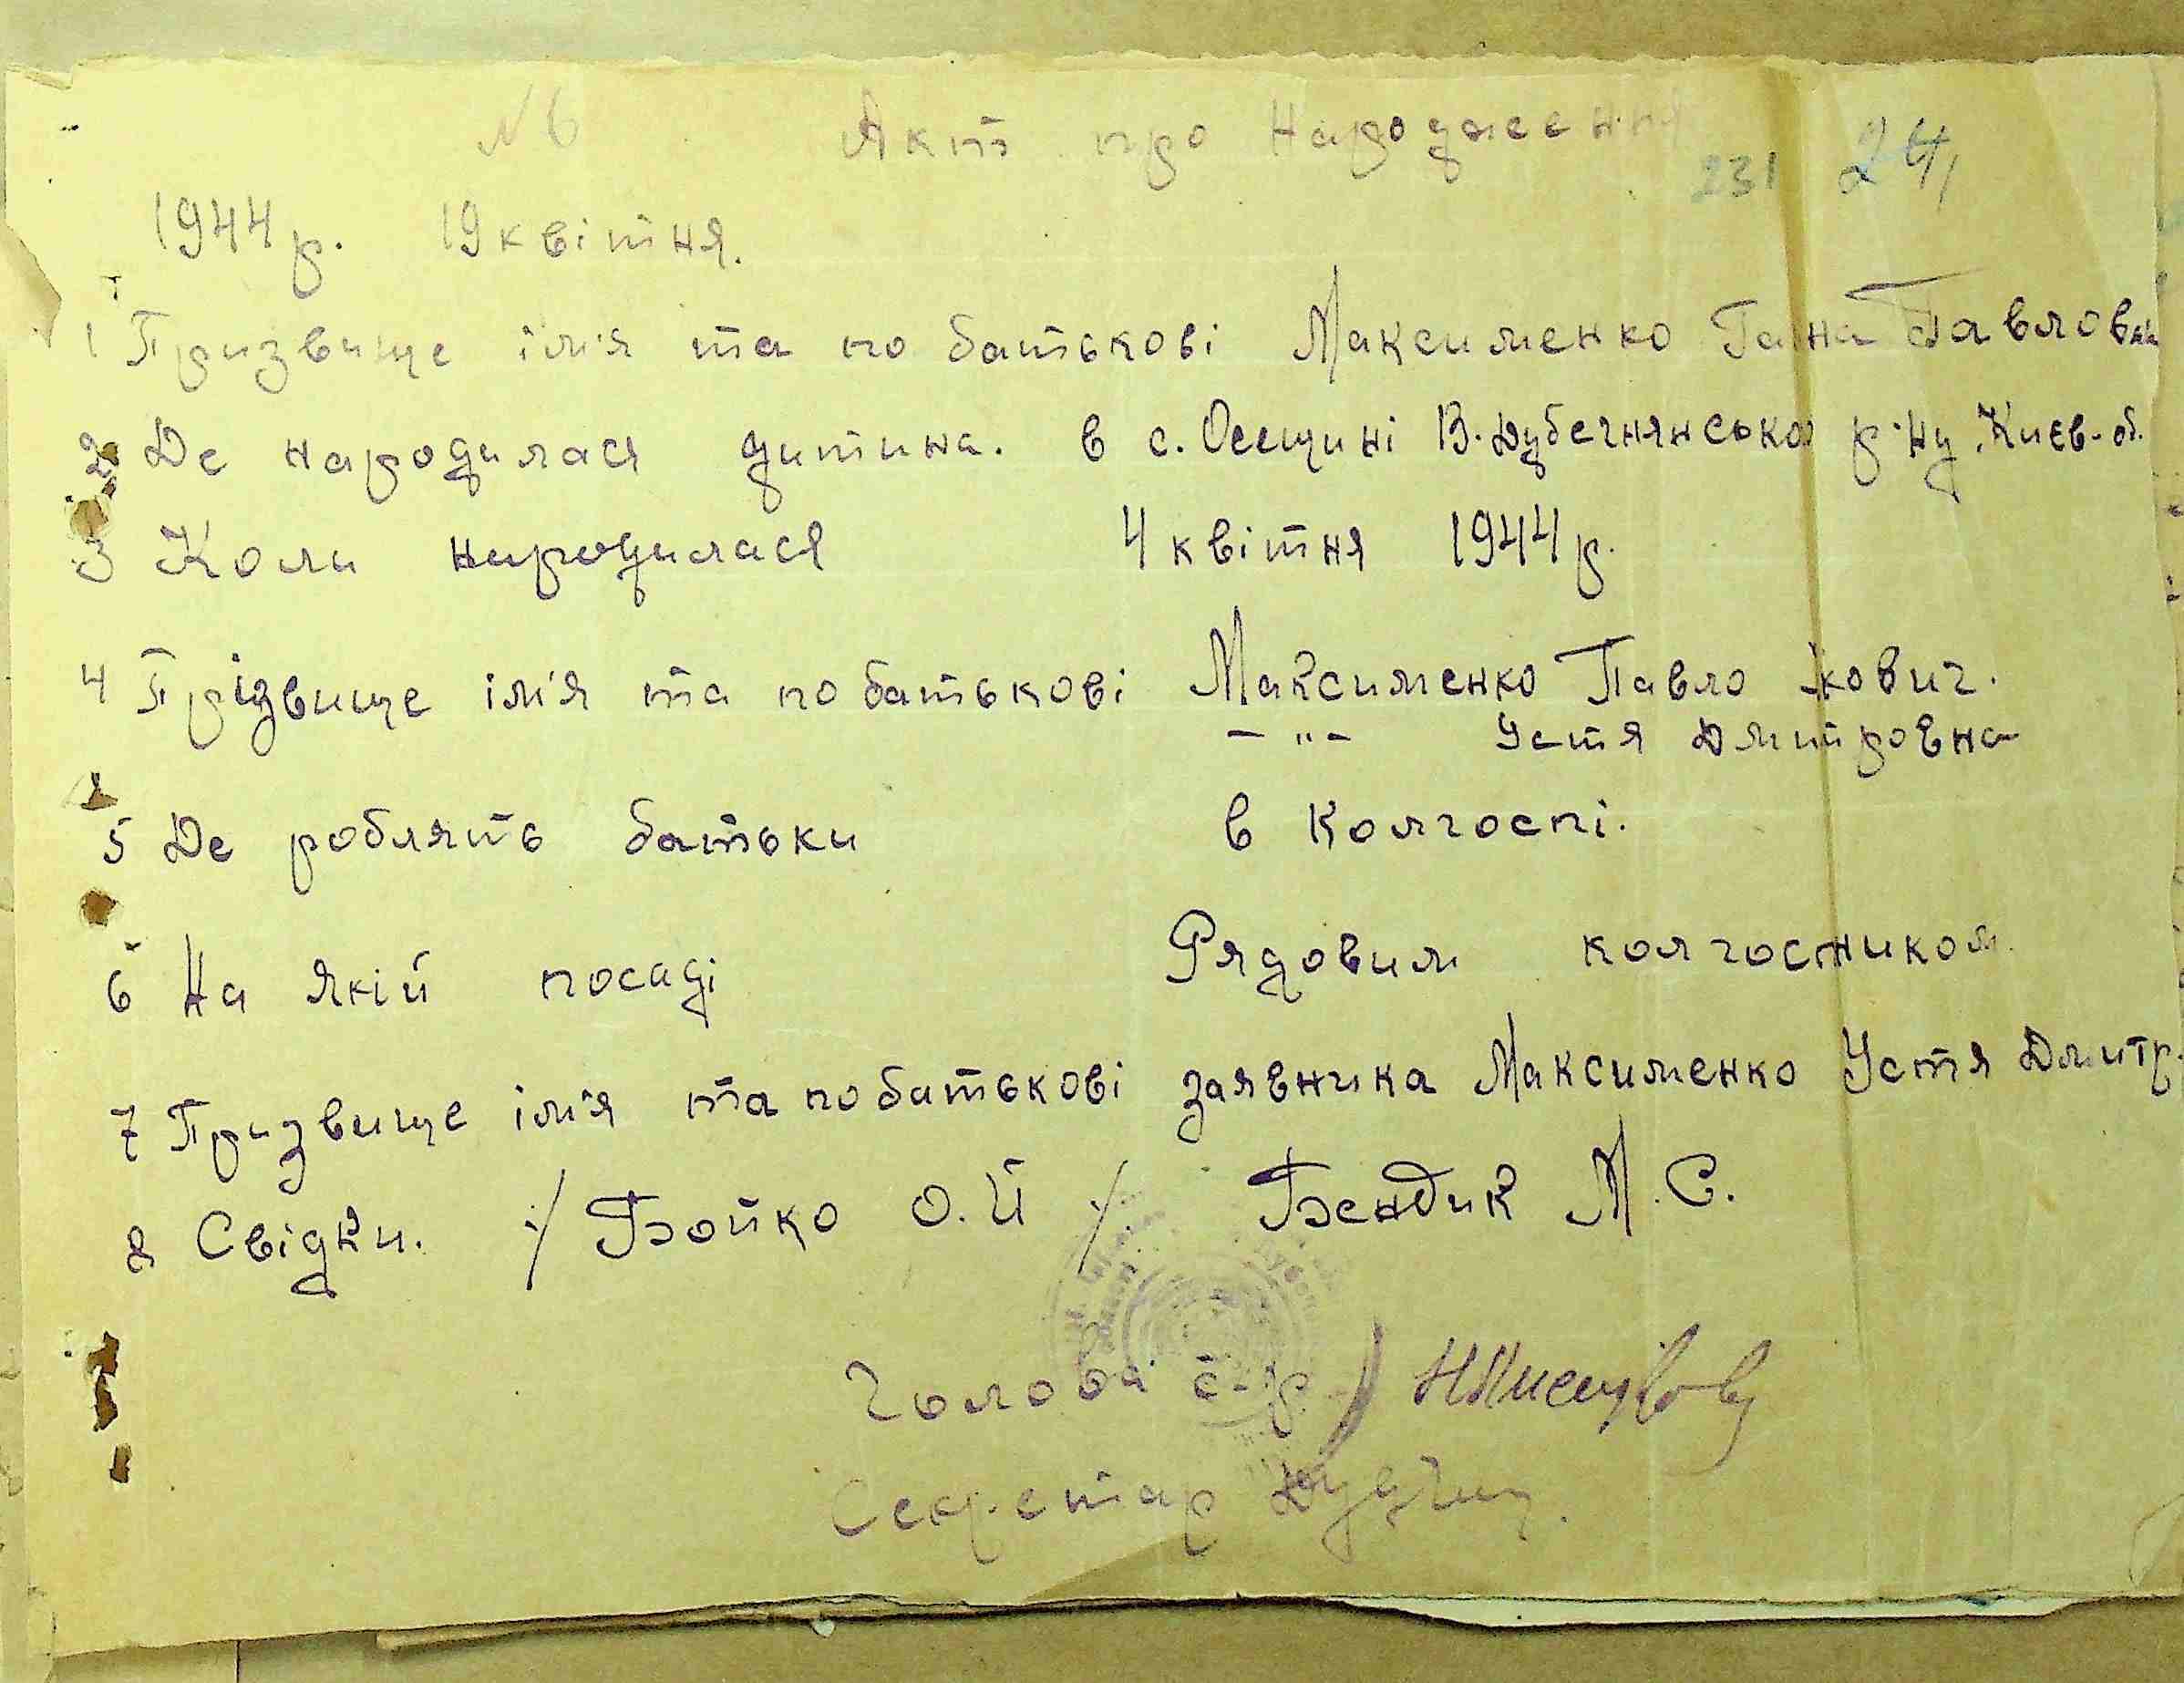 № 6 Акт про Народження
231 24
1944 р. 19 квітня.
1 Призвище імя та по батькові Максименко Гана Павловна
2 Де народилася дитина. в с. Осещині В. Дубечнянсько р-ну Києв-об.
3 Коли народилася 4 квітня 1944 р.
4 Прізвище імя та по батькові Максименко Павло Якович.
— " — Устя Дмитровна
5 Де роблять батьки в Колгоспі.
6 На якій посаді Рядовим колгоспником.
7 Призвище імя та по батькові заявника Максименко Устя Дмитр.
8 Свідки. / Бойко О. Й / Бендик М. С.
Голова с-р
Секретар